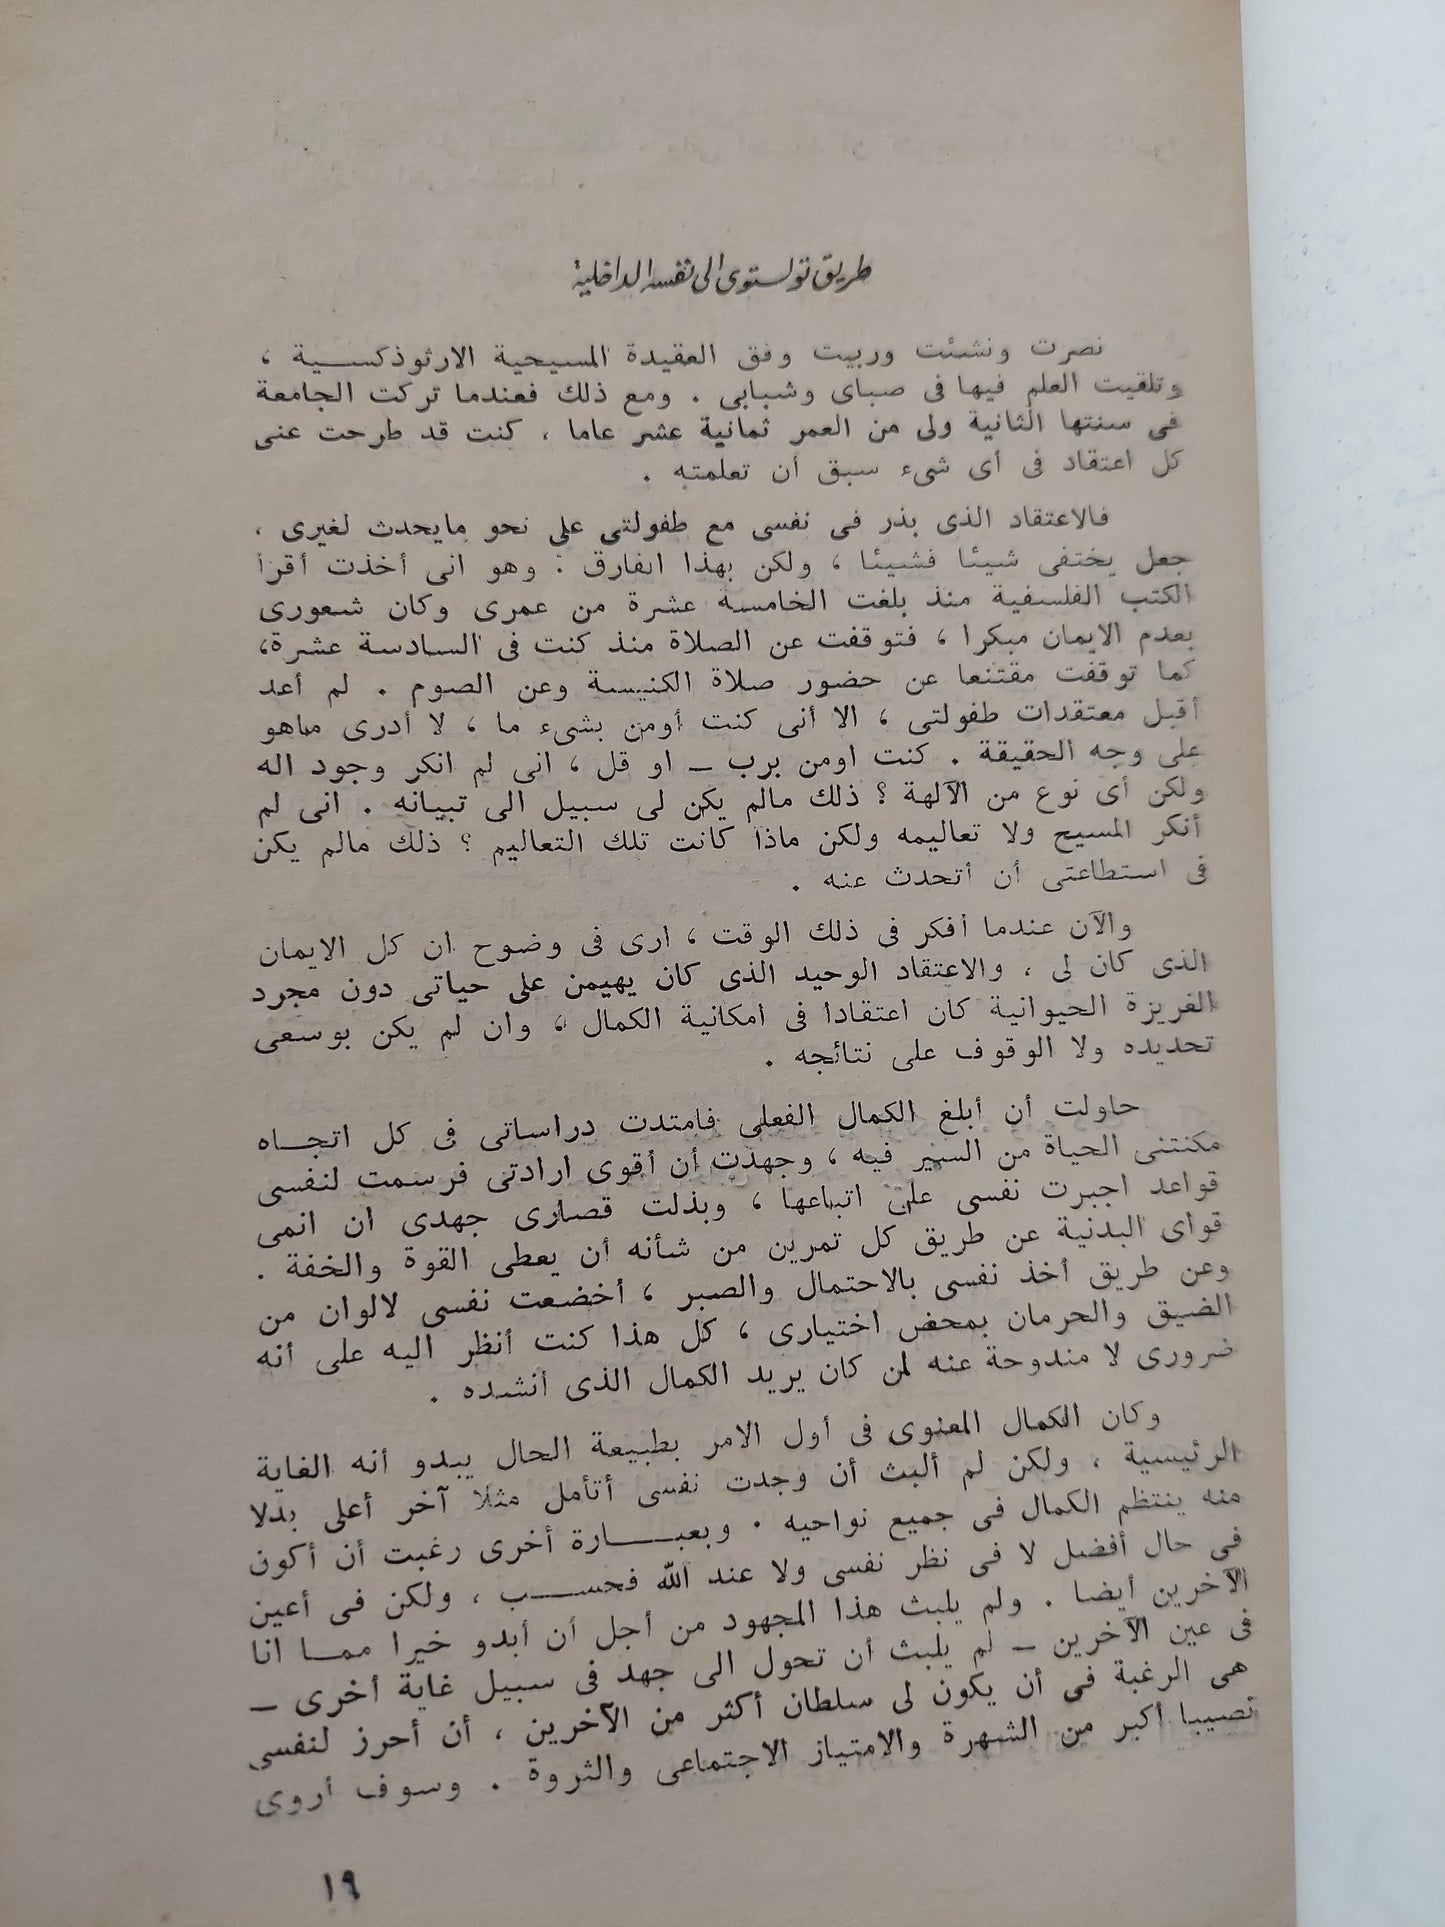 طريق تولستوى الى نفسه الداخلية
نصرت ونشئت وربيت وفق العقيدة المسيحية الارثوذكسية ،
وتلقيت العلم فيها فى صباى وشبابى . ومع ذلك فعندما تركت الجامعة
فى سنتها الثانية ولى من العمر ثمانية عشر عاما ، كنت قد طرحت عنى
كل اعتقاد فى أى شىء سبق أن تعلمته .
فالاعتقاد الذى بذر فى نفسى مع طفولتى على نحو مايحدث لغيرى ،
جعل يختفى شيئا فشيئا ، ولكن بهذا الفارق : وهو انى أخذت أقرأ
الكتب الفلسفية منذ بلغت الخامسة عشرة من عمرى وكان شعورى
بعدم الايمان مبكرا ، فتوقفت عن الصلاة منذ كنت فى السادسة عشرة،
كما توقفت مقتنعا عن حضور صلاة الكنيسة وعن الصوم . لم أعد
أقبل معتقدات طفولتى ، الا أنى كنت أومن بشىء ما ، لا أدرى ماهو
على وجه الحقيقة . كنت اومن برب ـ او قل ، انى لم انكر وجود اله
ولكن أى نوع من الآلهة ؟ ذلك مالم يكن لى سبيل الى تبيانه . انى لم
أنكر المسيح ولا تعاليمه ولكن ماذا كانت تلك التعاليم ؟ ذلك مالم يكن
فى استطاعتى أن أتحدث عنه .
والآن عندما أفكر فى ذلك الوقت ، ارى فى وضوح ان كل الايمان
الذى كان لى ، والاعتقاد الوحيد الذى كان يهيمن على حياتى دون مجرد
الغريزة الحيوانية كان اعتقادا فى امكانية الكمال ، وان لم يكن بوسعى
تحديده ولا الوقوف على نتائجه .
حاولت أن أبلغ الكمال الفعلى فامتدت دراساتى فى كل اتجاه
مكنتنى الحياة من السير فيه ، وجهدت أن أقوى ارادتى فرسمت لنفسى
قواعد اجبرت نفسى على اتباعها ، وبذلت قصارى جهدى ان انمى
قواى البدنية عن طريق كل تمرين من شأنه أن يعطى القوة والخفة .
وعن طريق أخذ نفسى بالاحتمال والصبر ، أخضعت نفسى لالوان من
الضيق والحرمان بمحض اختيارى ، كل هذا كنت أنظر اليه على أنه
ضرورى لا مندوحة عنه لمن كان يريد الكمال الذى أنشده .
وكان الكمال المعنوى فى أول الامر بطبيعة الحال يبدو أنه الغاية
الرئيسية ، ولكن لم ألبث أن وجدت نفسى أتأمل مثلا آخر أعلى بدلا
منه ينتظم الكمال فى جميع نواحيه . وبعبارة أخرى رغبت أن أكون
فى حال أفضل لا فى نظر نفسى ولا عند الله فحسب ، ولكن فى أعين
الآخرين أيضا . ولم يلبث هذا المجهود من أجل أن أبدو خيرا مما انا
فى عين الآخرين ـ لم يلبث أن تحول الى جهد فى سبيل غاية أخرى ـ
هى الرغبة فى أن يكون لى سلطان أكثر من الآخرين ، أن أحرز لنفسى
نصيبا أكبر من الشهرة والامتياز الاجتماعى والثروة . وسوف أروى
١٩